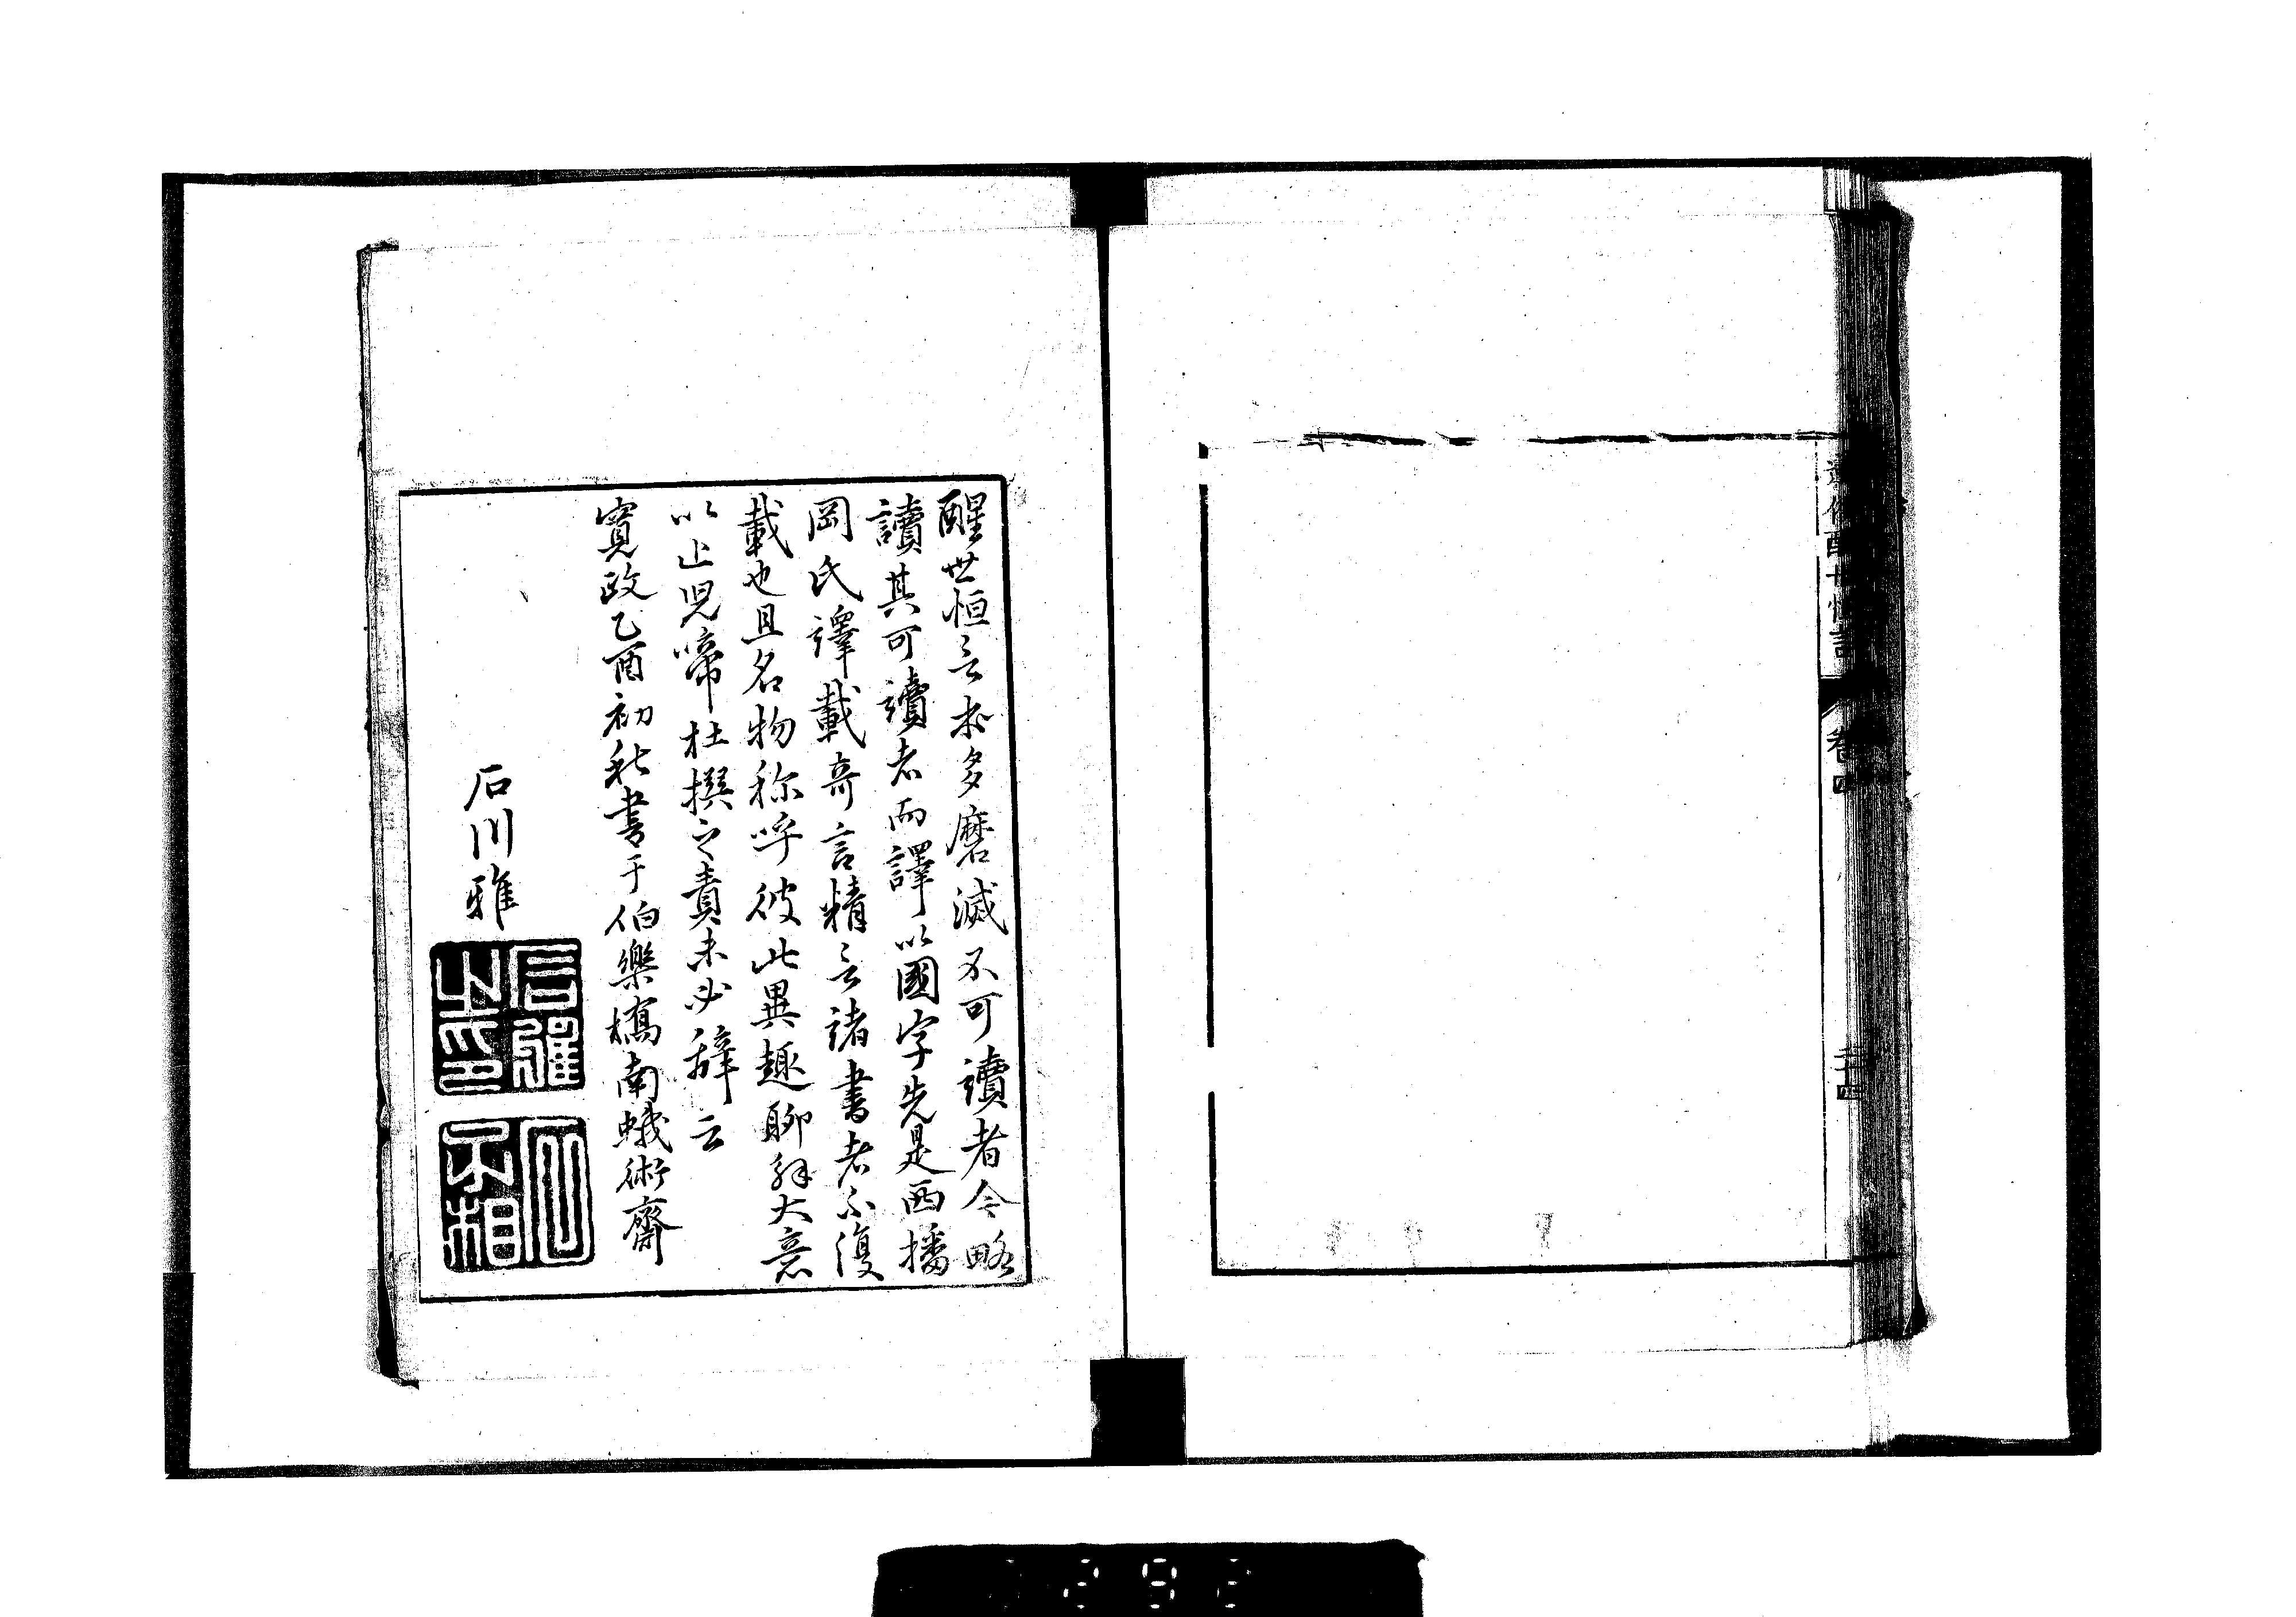 卷四
醒世恒言率多磨滅不可讀者今略
讀其可讀者而譯以國字先是西播
岡氏譯載奇言精言諸書者不復
載也且名物称呼彼此異趣聊解大意
以止兒啼杜撰之責未必辞云
寛政乙酉初秋書于伯樂橋南蛾術齋
石川雅
石雅
之印
不相